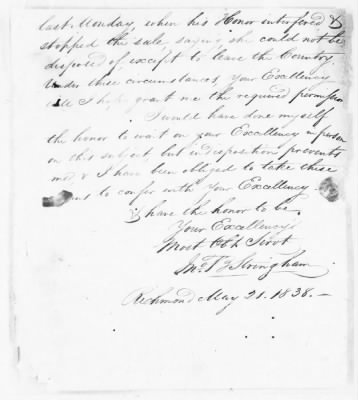 last Monday, when his Honor interfered &
stopped the sale, saying she could not be
disposed of except to leave the Country.
Under these circumstances, Your Excellency
will I hope, grant me the required permission
I would have done myself
the honor to wait on your Excellency in person
on this subject, but indisposition prevents
me & I have been obliged to take these
means to confer with Your Excellency
I have the honor to be,
Your Excellency's
Most Obt Servt
Stringham
Richmond May 21. 1838. –